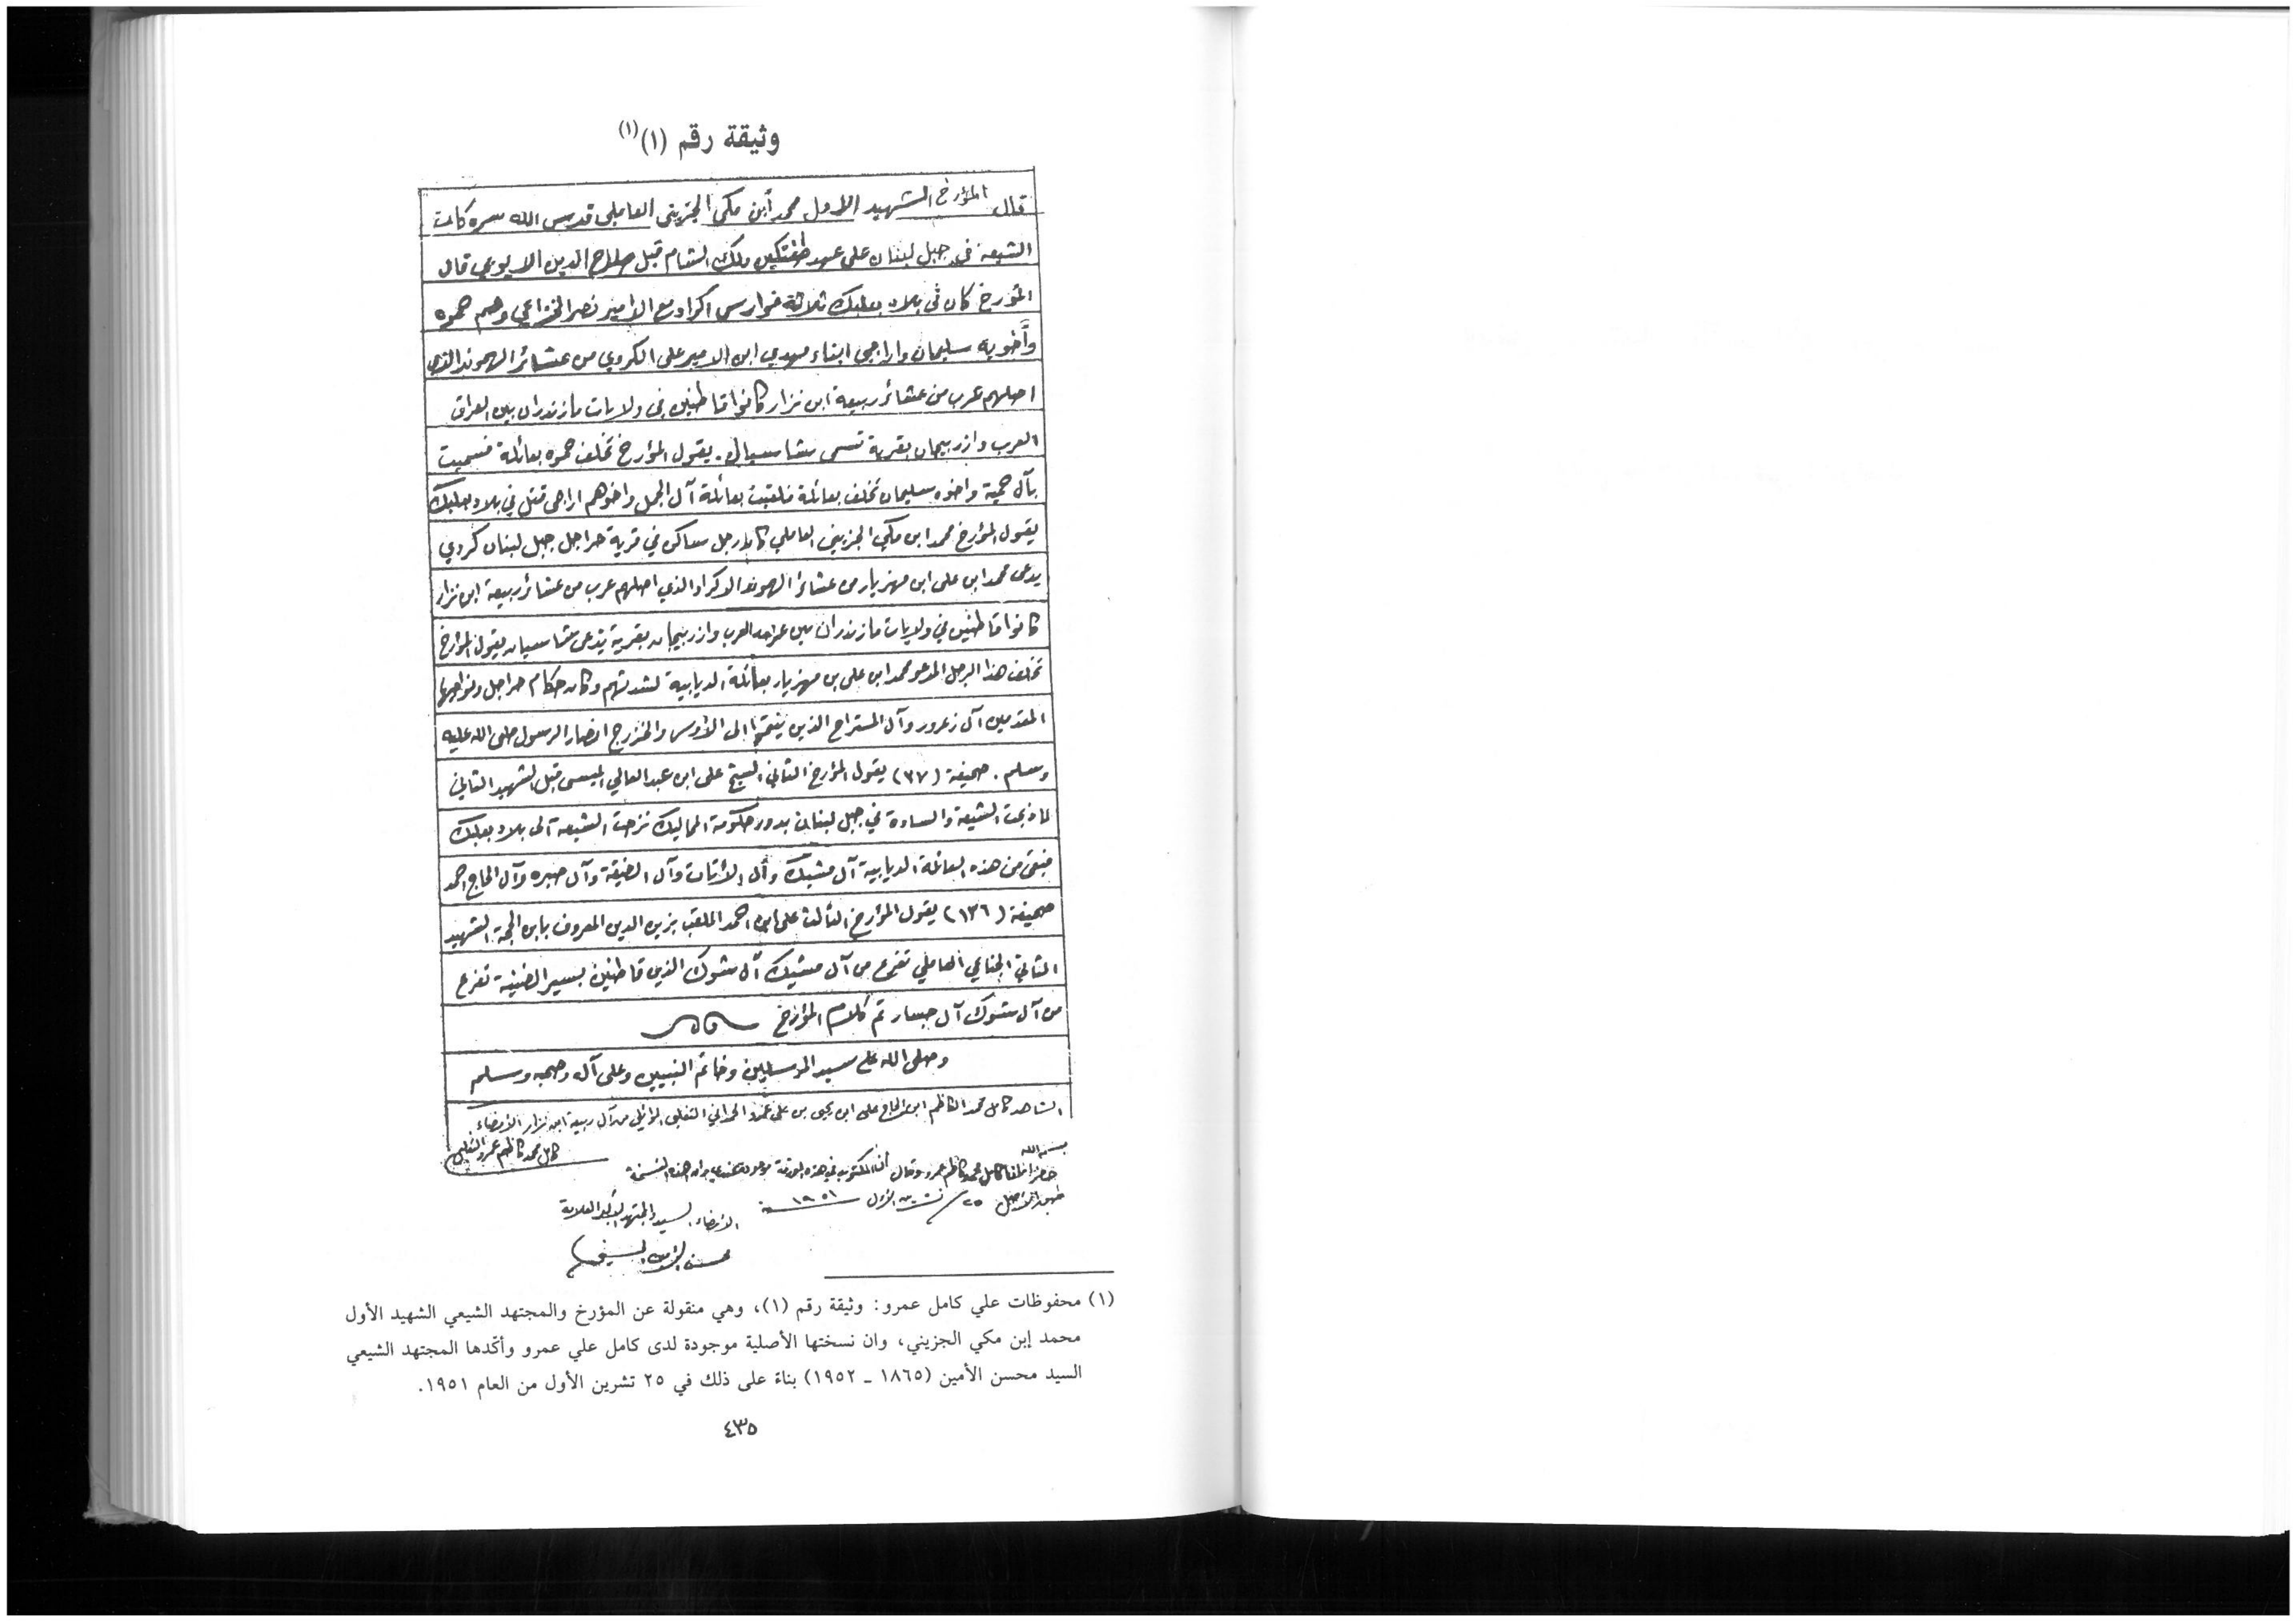 وثيقة رقم (١)(١)
قال المؤرخ الشهيد الاول محمد أبن مكي الجزيني العاملي قدس الله سره كانت
الشيعة في جبل لبنان على عهد طغتكين ملك الشام قبل صلاح الدين الايوبي قال
المؤرخ كان في بلاد بعلبك ثلاثة فوارس اكراد مع الامير نصر الخزاعي وهم حموه
وأخويه سليمان واراجي ابناء مهدي ابن الامير علي الكردي من عشائر الهموند الذي
اصلهم عرب من عشائر ربيعة ابن نزار كانوا قاطنين في ولايات مازندران بين العراق
العرب وازربيجان بقرية تسمى مشا سيال. يقول المؤرخ تخلف حموه بعائلة فسميت
بآل حمية واخوه سليمان تخلف بعائلة فلقبت بعائلة آل الجمل واخوهم اراجي قتل في بلاد بعلبك
يقول المؤرخ محمد ابن مكي الجزيني العاملي كان رجل ساكن في قرية حراجل جبل لبنان كردي
يدعى محمد ابن علي ابن مهزيار من عشائر الهموند الاكراد الذي اصلهم عرب من عشائر ربيعة ابن نزار
كانوا قاطنين في ولايات مازندران بين العرب وازربيجان بقرية تدعى مشا سيان يقول المؤرخ
تخلف هذا الرجل المدعو محمد ابن علي بن مهزيار بعائلة الديابية لشدتهم وكان حكام حراجل ونواحيها
المقدمين آل زعرور وآل المستراح الذين ينتمو إلى الأوس والخزرج انصار الرسول صلى الله عليه
وسلم. صحيفة (٣٧) يقول المؤرخ الثاني الشيخ علي ابن عبد العالي الميسي قبل الشهيد الثاني
لما ذبحت الشيعة والسادة في جبل لبنان بدور حكومة المماليك نزحت الشيعة الى بلاد بعلبك
فبقى من هذه العائلة الديابية آل مشيك وآل وآل الضيقة وآل صبره وآل الحاج احمد
صحيفة (١٣٦) يقول المؤرخ الثالث علي ابن احمد الملقب بزين الدين المعروف بابن الحجة الشهيد
الثاني العاملي تفرع من آل مشيك آل شوك الذين قاطنين بسير الضنية تفرع
من آل شوك آل جبار تم كلام المؤرخ
وصلى الله على سيد المرسلين وخاتم النبيين وعلى آله وصحبه وسلم
الشاهد كامل محمد الكاظم ابن الحاج علي ابن يحيى بن علي عمرو الحراني التغلبي الوائلي من آل ربيعة ابن نزار الأمضاء
كامل محمد كاظم عمرو التغلبي
بسم الله
حضر كامل محمد كاظم عمرو وقال أن المكتوب في هذه الورقة موجود عندي وان هذه النسخة
طبق الأصل ٢٥ / تشرين الأول ١٩٥١
الأمضاء السيد المجتهد الأكبر العلامة
محسن الأمين الحسيني
(١) محفوظات علي كامل عمرو: وثيقة رقم (١)، وهي منقولة عن المؤرخ والمجتهد الشيعي الشهيد الأول
محمد إبن مكي الجزيني، وان نسختها الأصلية موجودة لدى كامل علي عمرو وأكّدها المجتهد الشيعي
السيد محسن الأمين (١٨٦٥ ـ ١٩٥٢) بناءً على ذلك في ٢٥ تشرين الأول من العام ١٩٥١.
٤٣٥